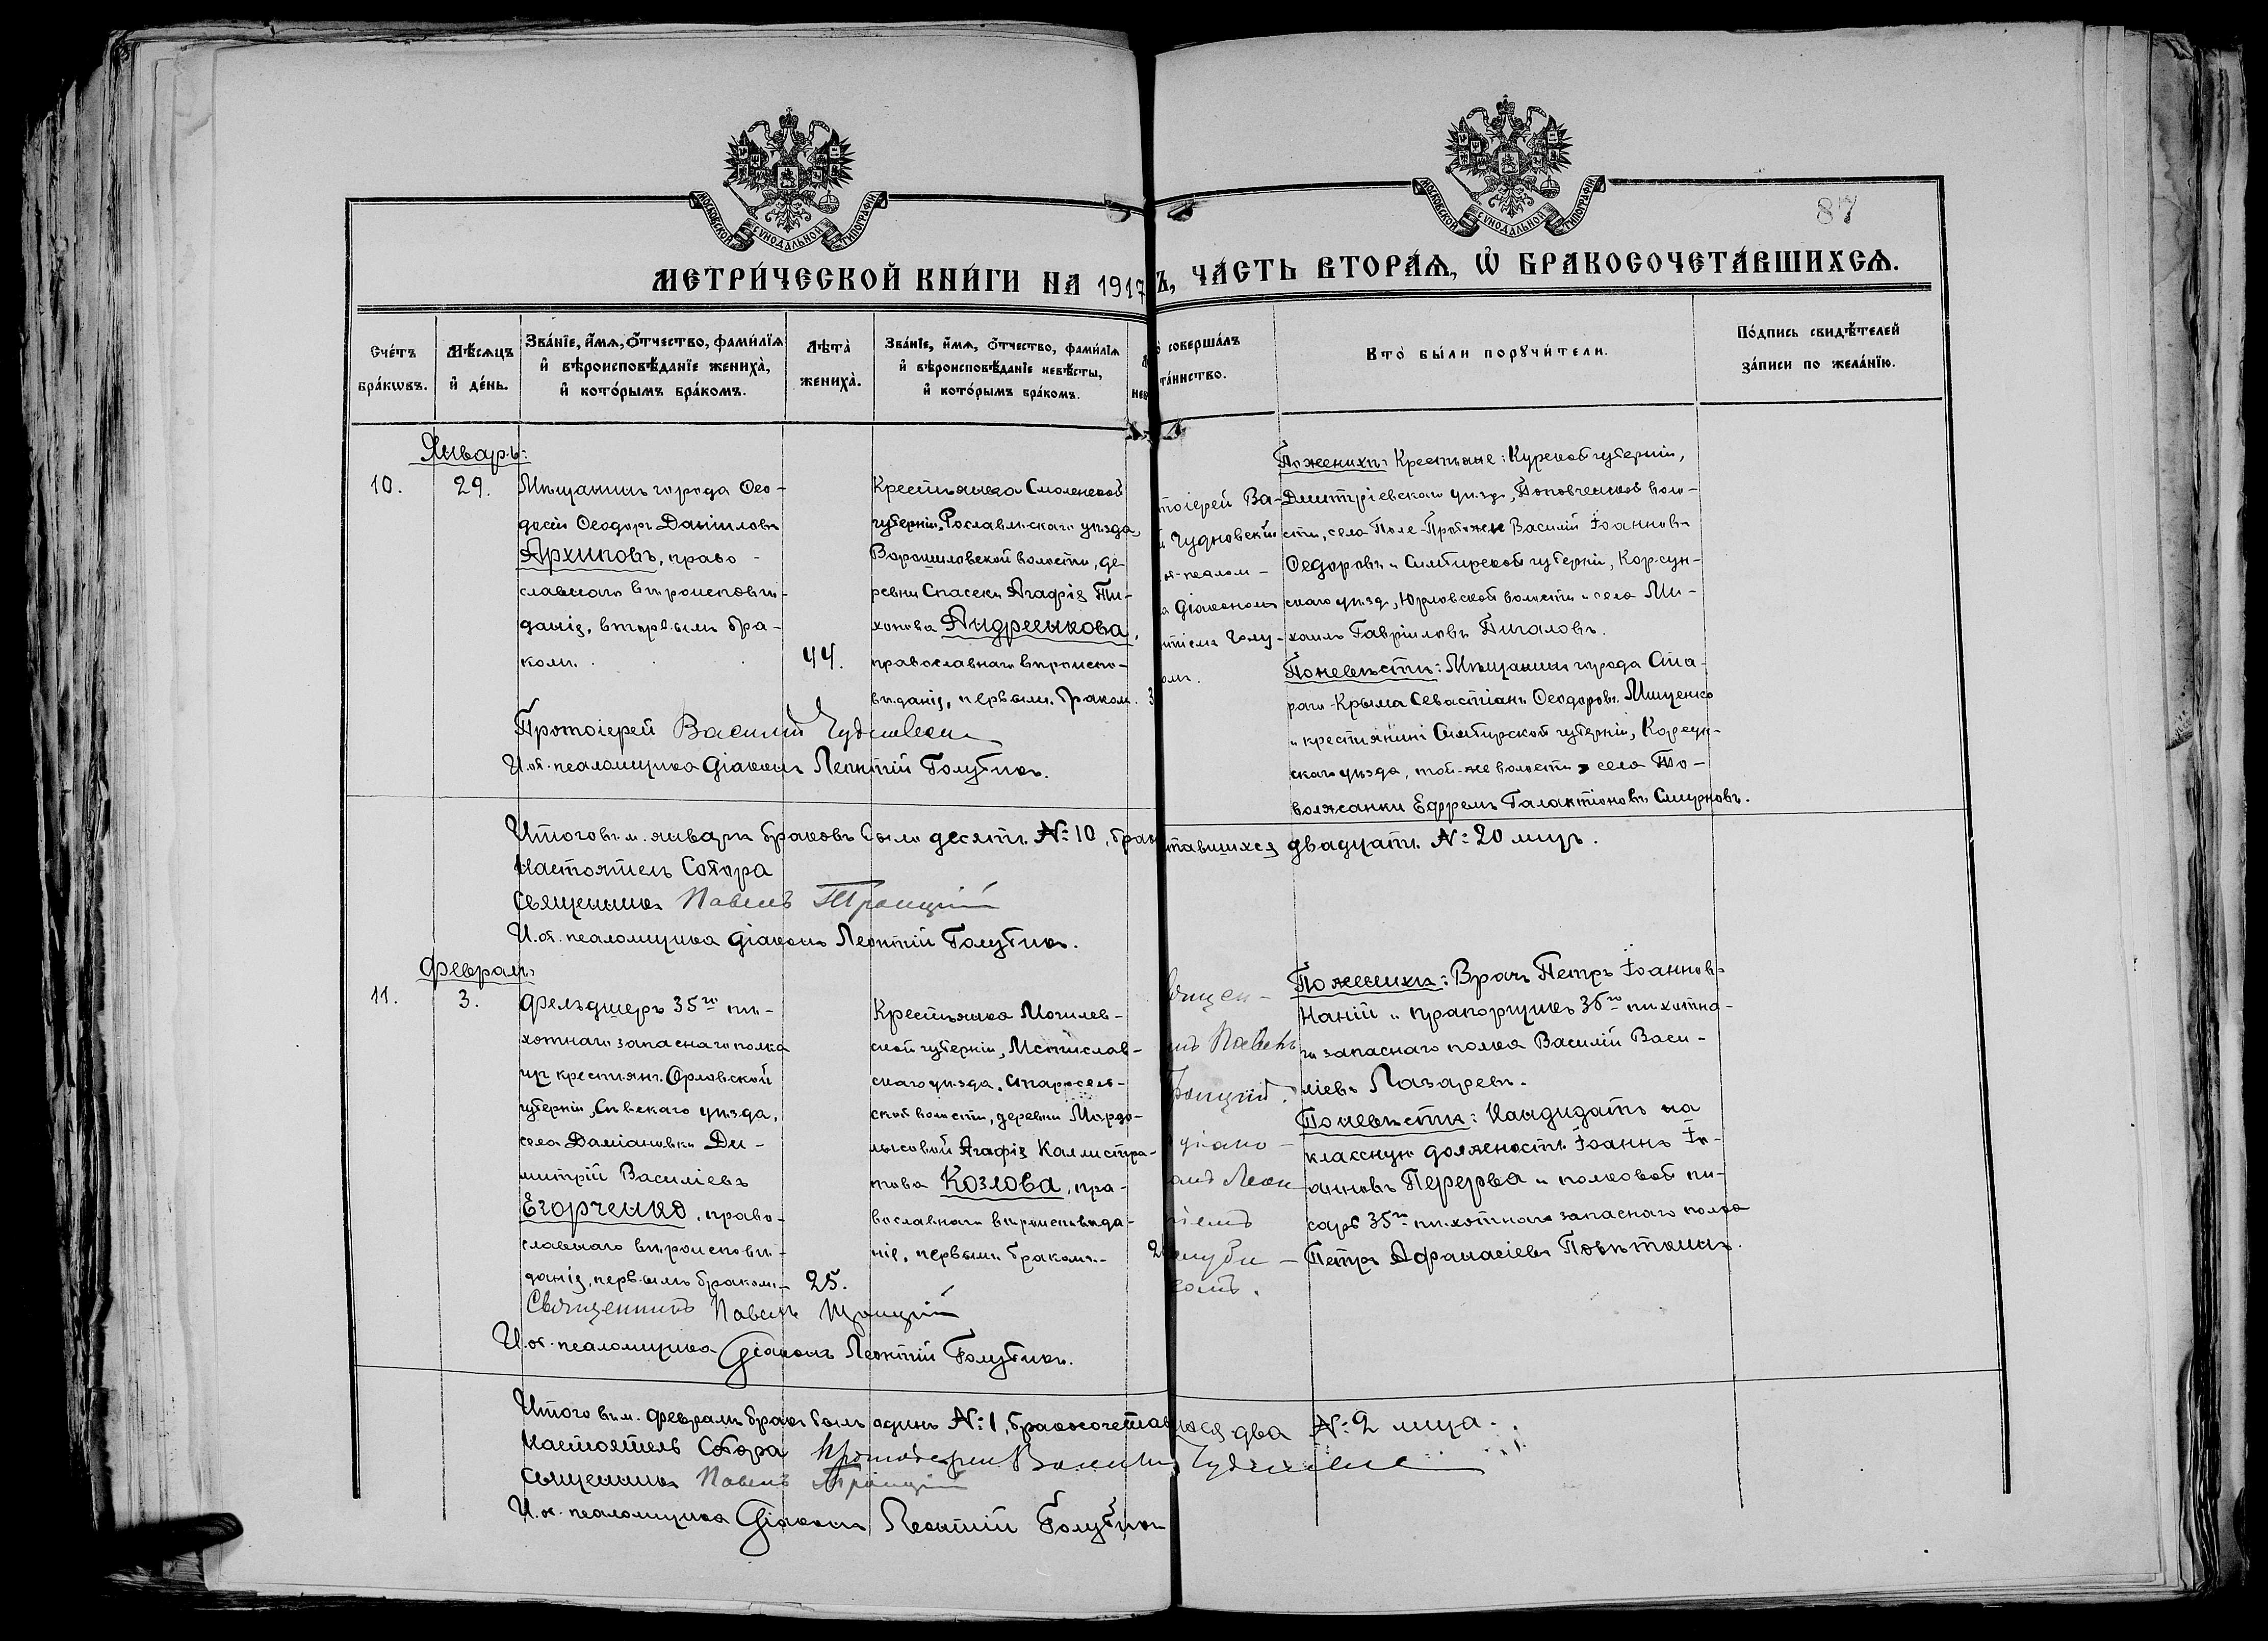 МОСКОВСКОЙ СѴНОДАЛЬНОЙ ТИПОГРАФІИ
МОСКОВСКОЙ СѴНОДАЛЬНОЙ ТИПОГРАФІИ
87
МЕТРИ́ЧЕСКОЙ КНИ́ГИ НА 1917
Ъ, ЧА́СТЬ ВТОРА́Ѧ, Ѡ҆ БРАКОСОЧЕТА́ВШИХСѦ.
Сче́тъ бра́кѡвъ.
Мѣ́сѧцъ и҆ де́нь.
Зва́нїе, и҆́мѧ, ѻ҆́тчество, фами́лїѧ
и҆ вѣроисповѣ́данїе жениха̀,
и҆ кото́рымъ бра́комъ.
Лѣта̀ жениха̀.
Зва́нїе, и҆́мѧ, ѻ҆́тчество, фами́лїѧ
и҆ вѣроисповѣ́данїе невѣ́сты,
и҆ кото́рымъ бра́комъ.
о̀ соверша́лъ
та́инство.
Кто̀ бы́ли порꙋчи́тели.
По́дпись свидѣ́телей
за́писи по жела́нїю.
Январь:
10.
29.
Мѣщанинъ города Ѳео-
досіи Ѳеодоръ Даніиловъ
Архиповъ, право-
славнаго вѣроисповѣ-
данія, вторымъ бра-
комъ.
44.
Крестьянка Смоленской
губерніи, Рославльскаго уѣзда,
Ворошиловской волости, де-
ревни Спасеки Агафія Ти-
хонова Андреенкова,
православнаго вѣроиспо-
вѣданія, первымъ бракомъ.
3
тоіерей Ва-
й Чудновскій
об. псалом-
а діакономъ
нтіемъ Голу-
омъ.
По женихѣ: Крестьяне: Курской губерніи,
Дмитріевскаго уѣзда, Поповкинской воло-
сти, села Поле-Протоки Василій Іоанновъ
Ѳедоровъ и Симбирской губерніи, Корсун-
скаго уѣзда, Юрловской волости и села Ми-
хаилъ Гавріиловъ Пигаловъ.
По невѣстѣ: Мѣщанинъ города Ста-
раго-Крыма Севастіанъ Ѳеодоровъ Мищенко
и крестьянинъ Симбирской губерніи, Корсун-
скаго уѣзда, той-же волости, села То-
волжанки Ефремъ Галактіоновъ Смирновъ.
Протоіерей Василій Чудновскій
И. об. псаломщика діаконъ Леонтій Голубинъ.
Итого въ м. январѣ браковъ было десять № 10, брак
тавшихся двадцать № 20 лицъ.
Настоятель Собора
Священникъ Павелъ Троицкій
И. об. псаломщика діаконъ Леонтій Голубинъ.
Февраль
11.
3.
Фельдшеръ 35го пѣ-
хотнаго запаснаго полка
изъ крестьянъ Орловской
губерніи, Сѣвскаго уѣзда,
села Даміановки Ди-
митрій Василіевъ
Егорченко, право-
славнаго вѣроисповѣ-
данія, первымъ бракомъ-
25.
Крестьянка Могилев-
ской губерніи, Мстислав-
скаго уѣзда, Старосель-
ской волости, деревни
Агафія Каллистра-
това Козлова, пра-
вославнаго вѣроисповѣда-
нія, первымъ бракомъ.-
2
вящен-
икъ Павелъ
роицкій.
діако-
омъ Леон
тіемъ
олуби-
номъ.
По женихѣ: Врачъ Петръ Іоанновъ
Наній и прапорщикъ 35го пѣхотна-
го запаснаго полка Василій Васи-
ліевъ Лазаревъ.
По невѣстѣ: Кандидатъ на
классную должность Іоаннъ Іо-
анновъ Перерва и полковой пи-
сарь 35го пѣхотнаго запаснаго полка
Петръ Афанасіевъ
Священникъ Павелъ Троицкій
И. об. псаломщика Діаконъ Леонтій Голубинъ.
Итого въ м. февралѣ бракъ былъ одинъ № 1, бракосочетав
ихся два № 2 лица.
Настоятель Собора Протоіерей Василій Чудновскій
Священникъ Павелъ Троицкій
И. об. псаломщика Діаконъ Леонтій Голубинъ